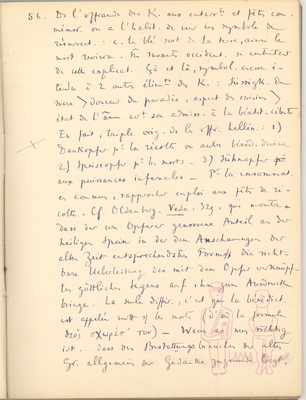 56. De l'offrande des K. aux enterrts et fêtes com-
mémor. on a l'habit. de voir un symbole de
résurrect. : c. le blé sort de la terre, ainsi le
mort revivra. En savants occident. se contentent
de cette explicat. Çà et là, symbol. encore é-
tendu à 2 autres élémts des K. : Süssigk. du
douceur du paradis, aspect des raisins
état de l'âme avt son admiss. à la béatit. céleste
En fait, triple orig. de la offr. hellén. : 1)
Dankopfer pr la récolte ou autres bénéd. divine
2) Speiseopfer pr les morts. - 3) Sühnopfer
aux puissances infernales - Pr la consommat.
en commun, rapprocher emploi aux fêtes de ré-
colte. Cf. Oldenberg. Veda. 329. qui montre
dass der vom Opferer genossene Anteil an der
heiligen Speise in der den Anschauungen der
alten Zeit entsprechendsten Form die sicht-
bare Ueberleitung des mit dem Opfer verknüpf-
ten göttlichen Segens auf ihn zum Ausdruck
bringe. La seule différ., c'est que la bénédict.
est appelée sur les morts d'où la formule
θεὸς σχωρέσ' τον) - Wenn es nun richtig
ist... dass den Bestattungsbräuchen der alten
Gr. allgemein der Gedanke zugrunde liegt